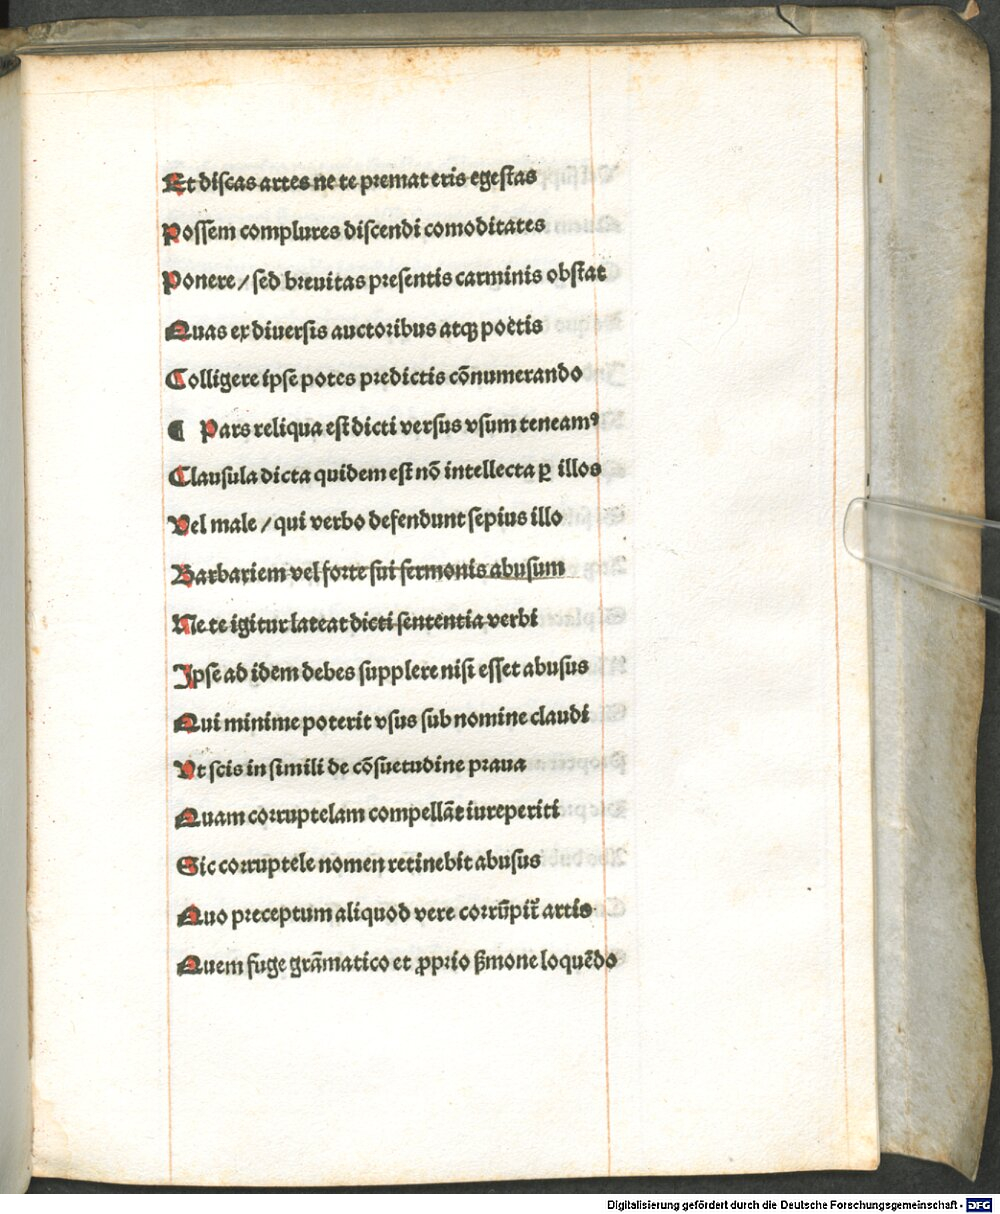 Et discas artes ne te premat eris egestas
Possem complures discendi comoditates
Ponere / sed breuitas presentis carminis obstat
Quas ex diuersis auctoribus atqꝫ poetis
Colligere ipse potes predictis cōnumerando
¶ Pars reliqua est dicti versus vsum teneamꝰ
Clausula dicta quidem est nō intellecta ꝑ illos
Vel male / qui verbo defendunt sepius illo
Barbariem vel forte sui sermonis abusum
Ne te igitur lateat dicti sententia verbi
Ipse ad idem debes supplere nisi esset abusus
Qui minime poterit vsus sub nomine claudi
Vt scis in simili de cōsuetudine praua
Quam corruptelam compellāt iureperiti
Sic corruptele nomen retinebit abusus
Quo preceptum aliquod vere corrūpit᷑ artis
Quem fuge grāmatico et ꝓprio ẜmone loquēdo
Digitalisierung gefördert durch die Deutsche Forschungsgemeinschaft - DFG